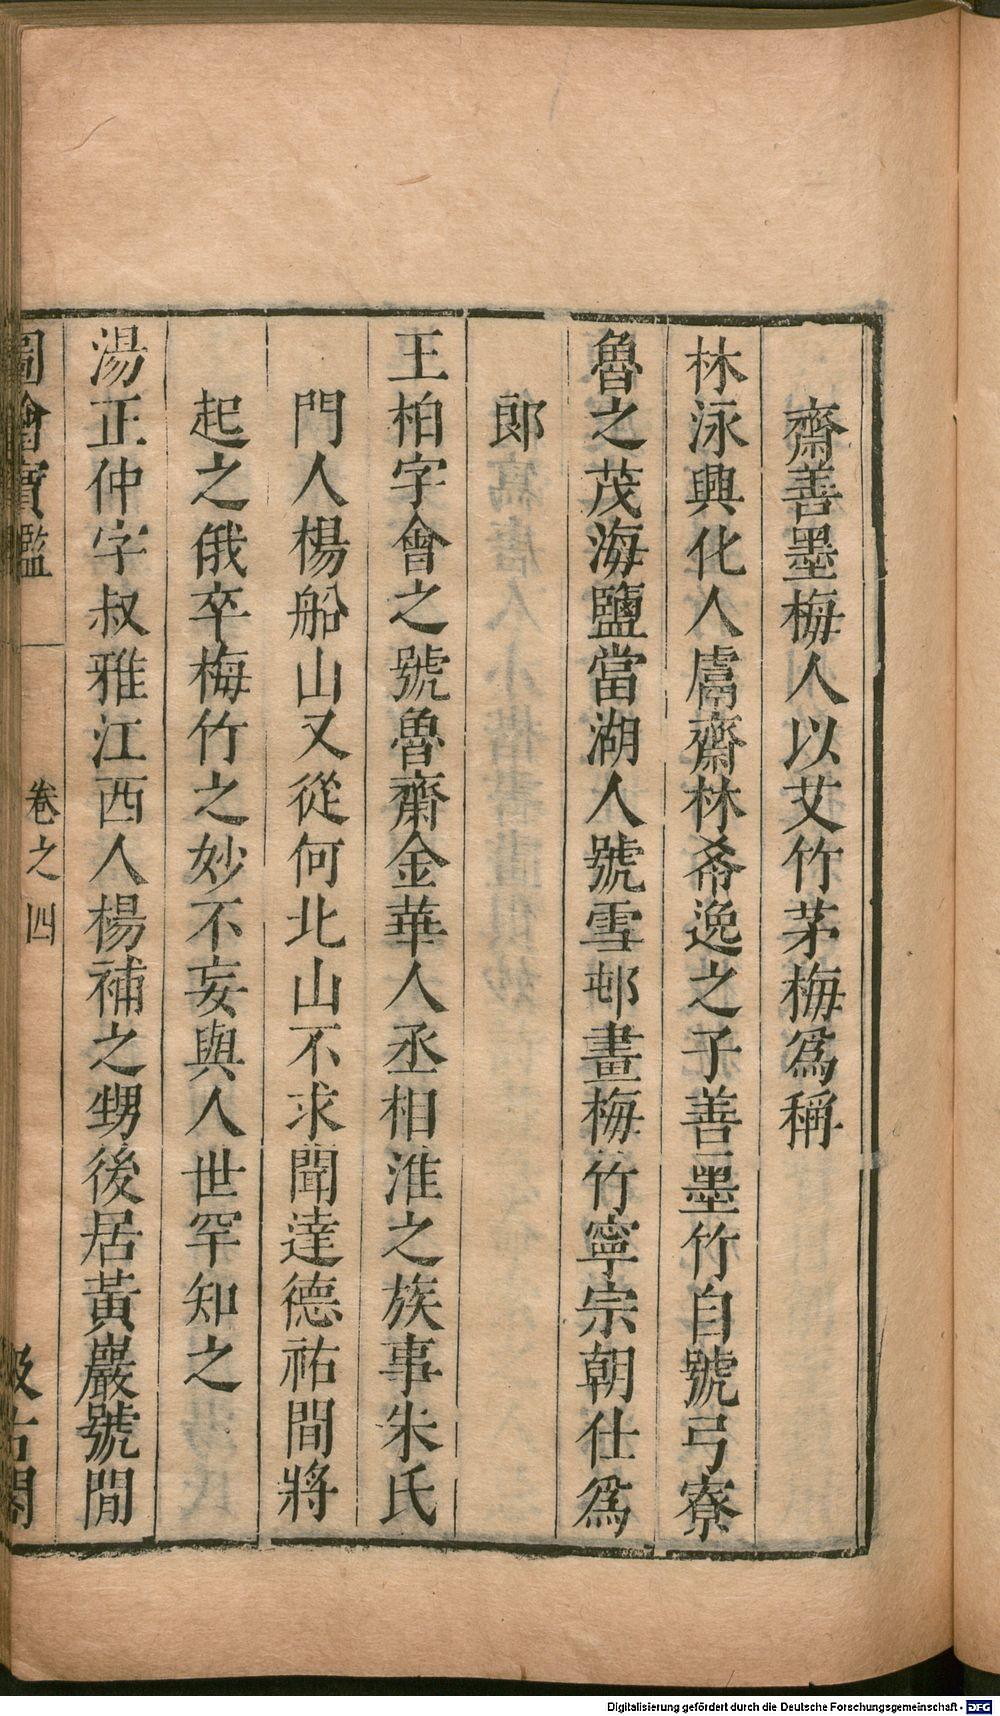 齋善墨梅人以艾竹茅梅爲稱
林泳興化人鬳齋林希逸之子善墨竹自號弓寮
魯之茂海鹽當湖人號雪邨畫梅竹寧宗朝仕爲
郎
王柏字會之號魯齋金華人丞相淮之族事朱氏
門人楊船山又從何北山不求聞達德祐間將
起之俄卒梅竹之妙不妄與人世罕知之
湯正仲字叔雅江西人楊補之甥後居黃巖號閒
圖繪寶鑑 卷之四 汲古閣
Digitalisierung gefördert durch die Deutsche Forschungsgemeinschaft - DFG